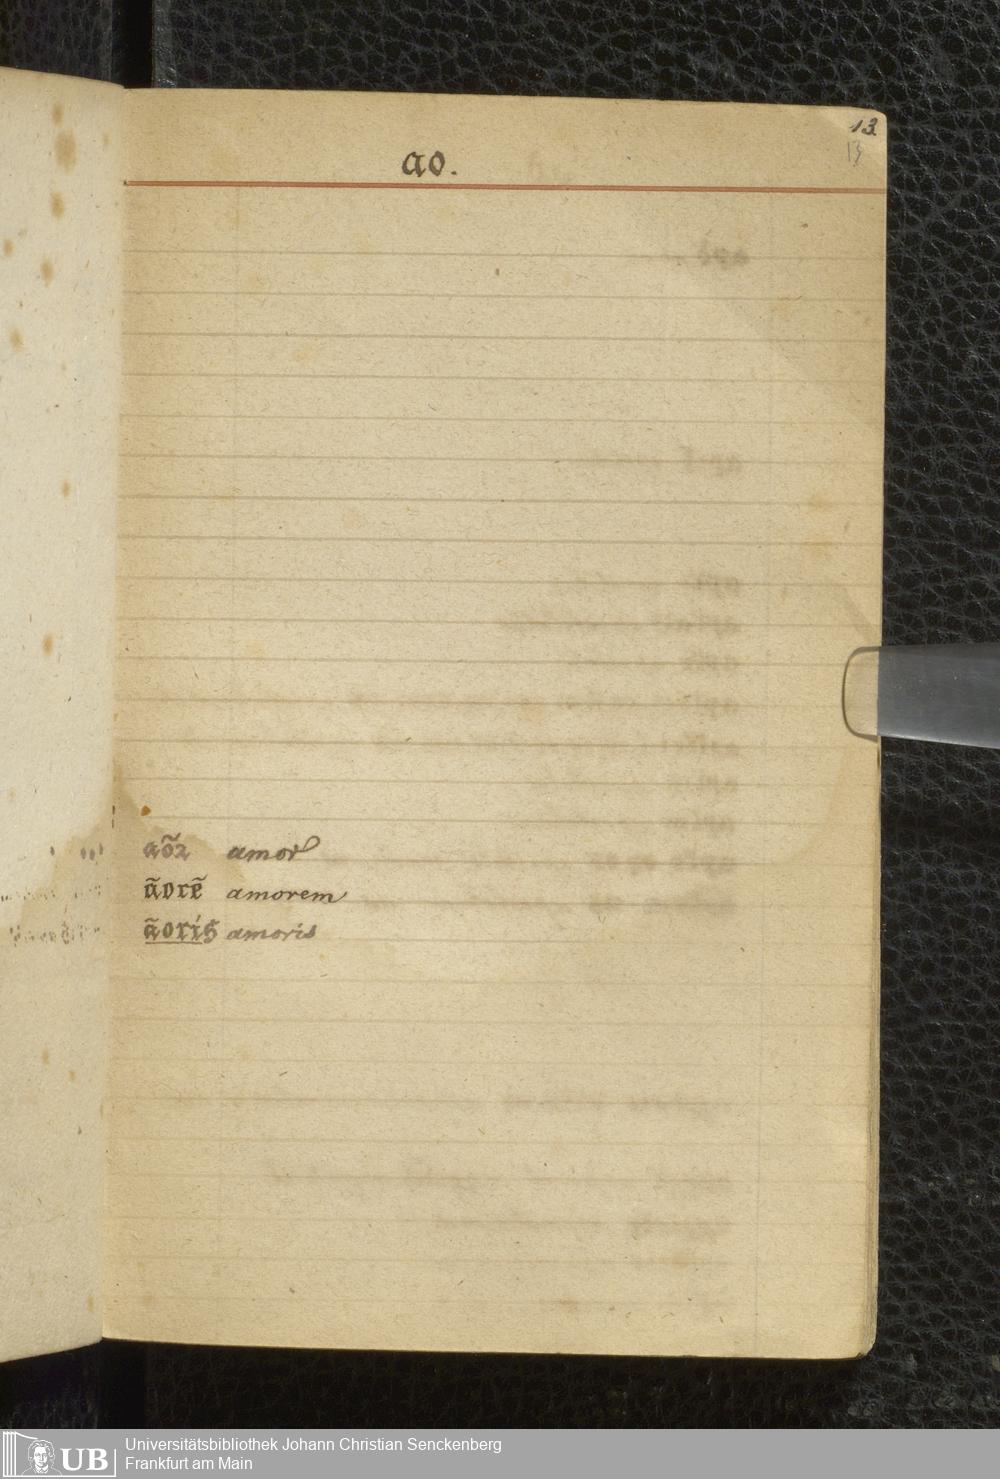 13.
13
ao.
aõꝛ amor
ãorẽ amorem
ãoris amoris
UB Universitätsbibliothek Johann Christian Senckenberg
Frankfurt am Main